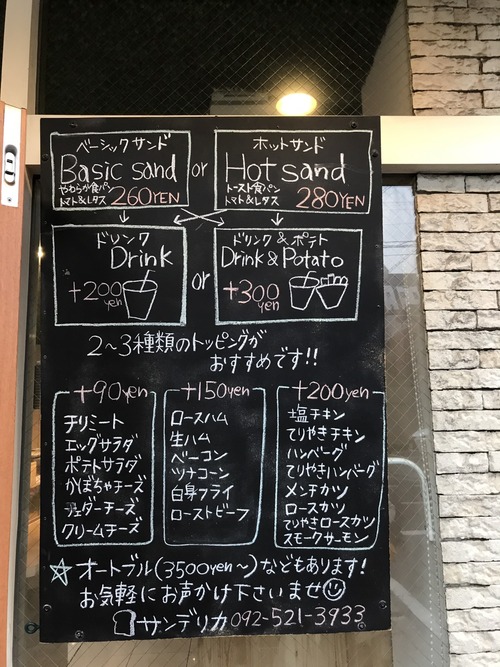 ベーシックサンド
Basic sand
やわらか食パン
トマト&レタス 260YEN
or
ホットサンド
Hot sand
トースト食パン
トマト&レタス 280YEN
ドリンク
Drink
+200yen
or
ドリンク & ポテト
Drink & Potato
+300yen
2〜3種類のトッピングが
おすすめです!!
+90yen
チリミート
エッグサラダ
ポテトサラダ
かぼちゃチーズ
チェダーチーズ
クリームチーズ
+150yen
ロースハム
生ハム
ベーコン
ツナコーン
白身フライ
ローストビーフ
+200yen
塩チキン
てりやきチキン
ハンバーグ
てりやきハンバーグ
メンチカツ
ロースカツ
てりやきロースカツ
スモークサーモン
☆オートブル(3500yen〜)などもあります!
お気軽にお声かけ下さいませ☺
サンデリカ 092-521-3933